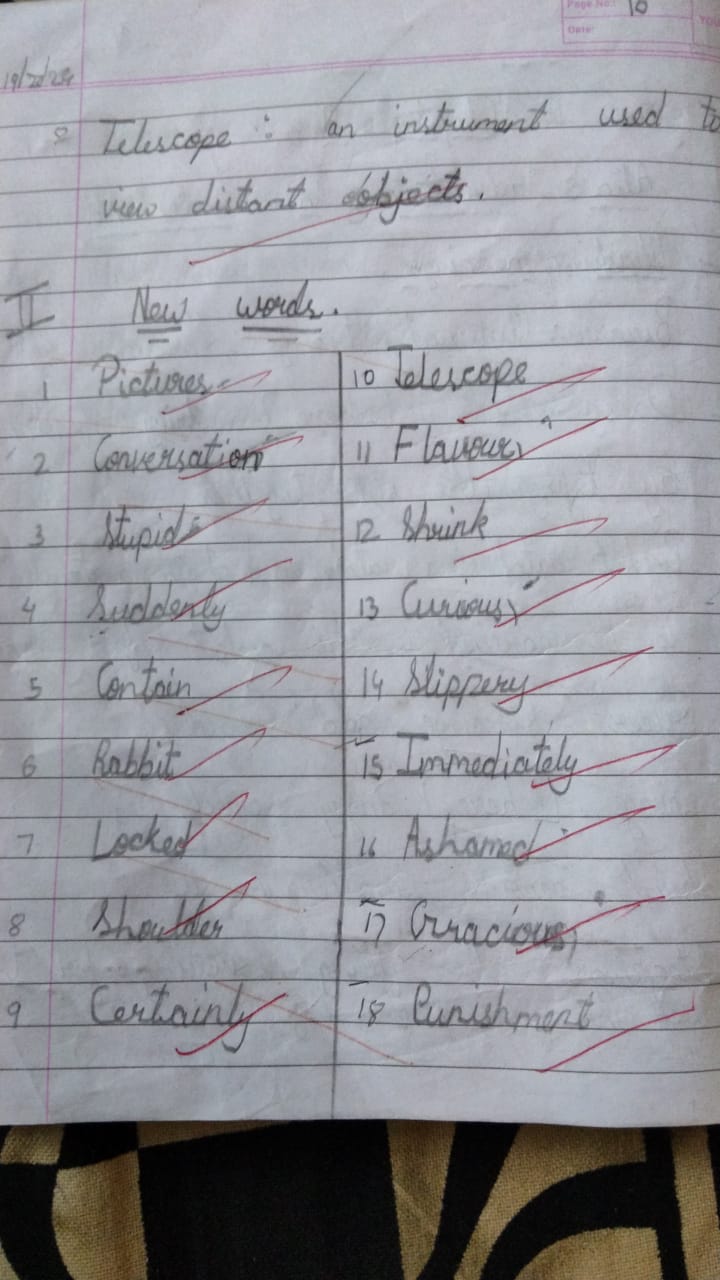 Page No.: 10
Date:
8 Telescope : an instrument used to
view distant objects.
II New words.
1 Pictures
2 Conversation
3 Stupid
4 Suddenly
5 Contain
6 Rabbit
7 Locked
8 Shoulder
9 Certainly
10 Telescope
11 Flavour
12 Shrink
13 Curious
14 Slippery
15 Immediately
16 Ashamed
17 Gracious
18 Punishment